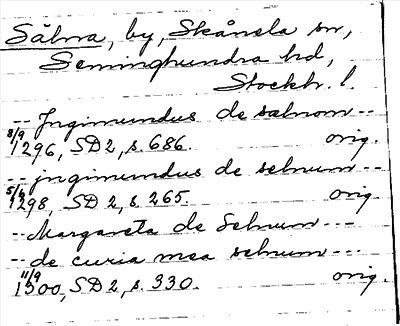 Sälna, by, Skånela sn,
Seminghundra hd,
Stockh. l.
-- Jngimundus de salnom --
8/9 1296, SD 2, s. 686. orig.
-- jngimundus de selnum --
5/6 1298, SD 2, s. 265. orig.
-- Margareta de Selnum ---
-- de curia mea selnum ---
11/9 1300, SD 2, s. 330. orig.